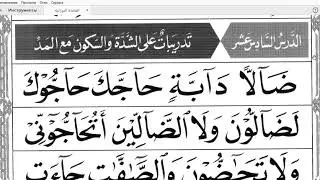 Инструменты
الدَّرْسُ السَّادِسُ عَشَرَ
تَدْرِيبَاتٌ عَلَى الشَّدَّةِ وَالسُّكُونِ مَعَ الْمَدِّ
ضَآلًّا دَآبَّةٍ حَآجَّكَ حَآجُّوْكَ
لَضَآلُّوْنَ وَلَا الضَّآلِّيْنَ أَتُحَآجُّوْنِّيْ
وَلَا تَحٰٓضُّوْنَ وَالصّٰٓفّٰتِ جَآءَتِ